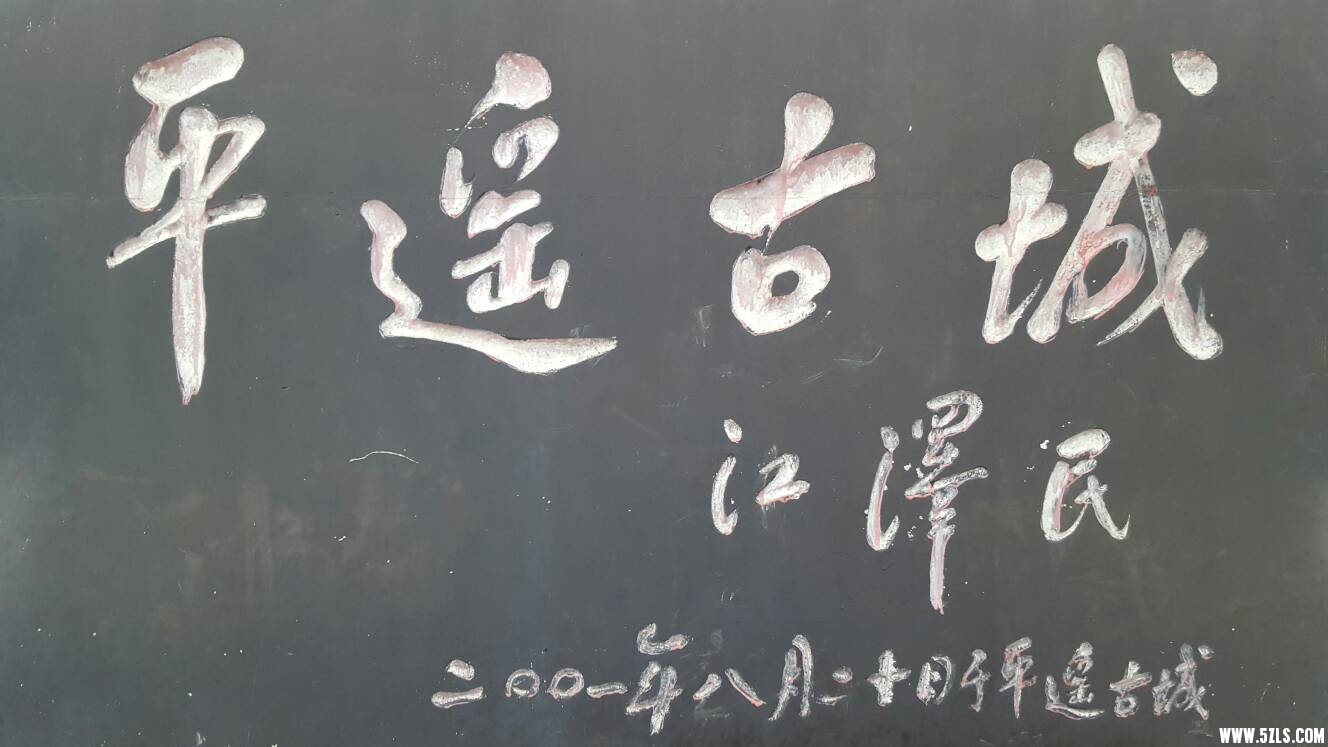 平遥古城
江澤民
二〇〇一年八月二十日于平遥古城
WWW.5ZLS.COM